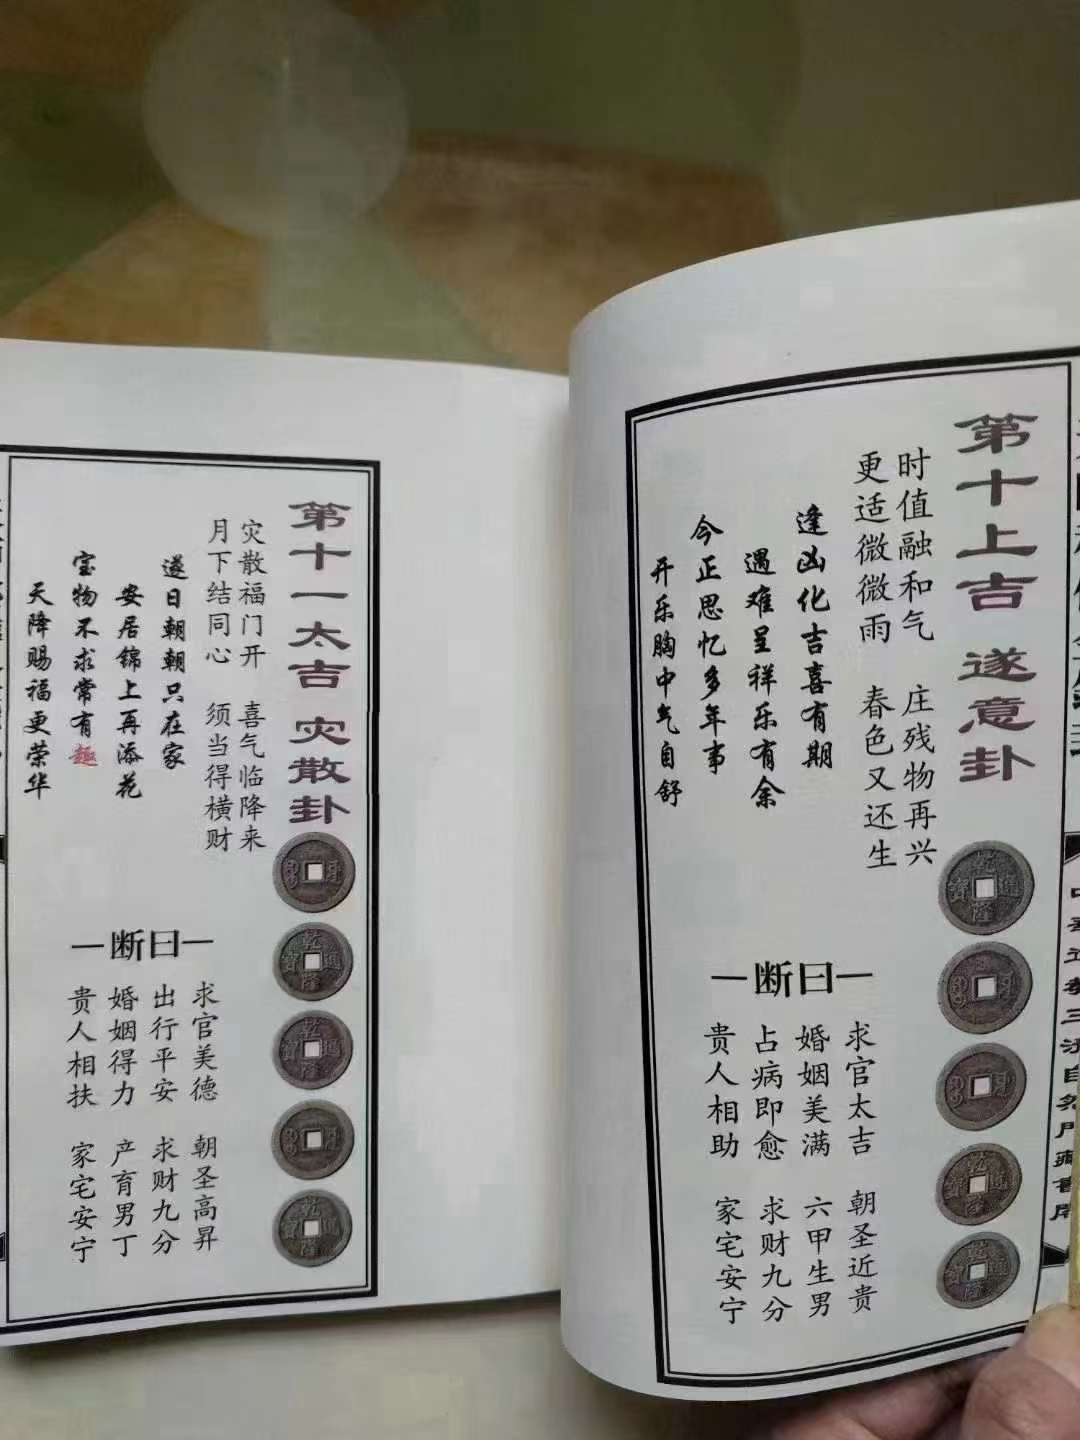 第十上吉 遂意卦
时值融和气 庄残物再兴
更适微微雨 春色又还生
逢凶化吉喜有期
遇难呈祥乐有余
今正思忆多年事
开乐胸中气自舒
乾隆通寶
乾隆通寶
乾隆通寶
一断曰一
求官太吉 朝圣近贵
婚姻美满 六甲生男
占病即愈 求财九分
贵人相助 家宅安宁
第十一太吉 灾散卦
灾散福门开 喜气临降来
月下结同心 须当得横财
遂日朝朝只在家
安居锦上再添花
宝物不求常有趣
天降赐福更荣华
乾隆通寶
乾隆通寶
乾隆通寶
一断曰一
求官美德 朝圣高昇
出行平安 求财九分
婚姻得力 产育男丁
贵人相扶 家宅安宁